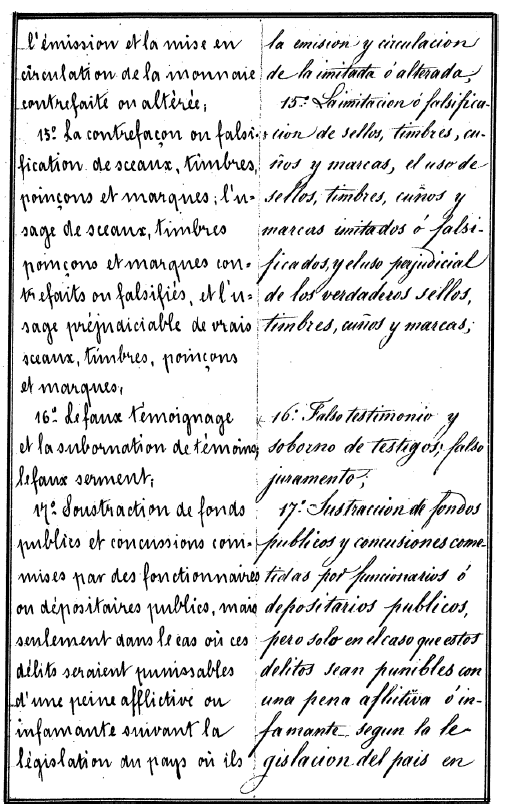 l'émission et la mise en
circulation de la monnaie
contrefaite ou altérée;
15.º La contrefaçon ou falsi-
fication de sceaux, timbres,
poinçons et marques; l'u-
sage de sceaux, timbres
poinçons et marques con-
trefaits ou falsifiés, et l'u-
sage préjudiciable de vrais
sceaux, timbres, poinçons
et marques;
16.º Le faux témoignage
et la subornation de témoins;
le faux serment;
17.º Soustraction de fonds
publics et concussions com-
mises par des fonctionnaires
ou dépositaires publics, mais
seulement dans le cas où ces
délits seraient punissables
d'une peine afflictive ou
infamante suivant la
législation du pays où ils
la emision y circulacion
de la imitada ó alterada,
15.º La imitacion ó falsifica-
cion de sellos, timbres, cu-
ños y marcas, el uso de
sellos, timbres, cuños y
marcas imitados ó falsi-
ficados, y el uso perjudicial
de los verdaderos sellos,
timbres, cuños y marcas;
16.º Falso testimonio y
soborno de testigos; falso
juramento;
17.º Sustraccion de fondos
publicos y concusiones come-
tidas por funcionarios ó
depositarios publicos,
pero solo en el caso que estos
delitos sean punibles con
una pena aflictiva ó in-
famante segun la le-
gislacion del pais en